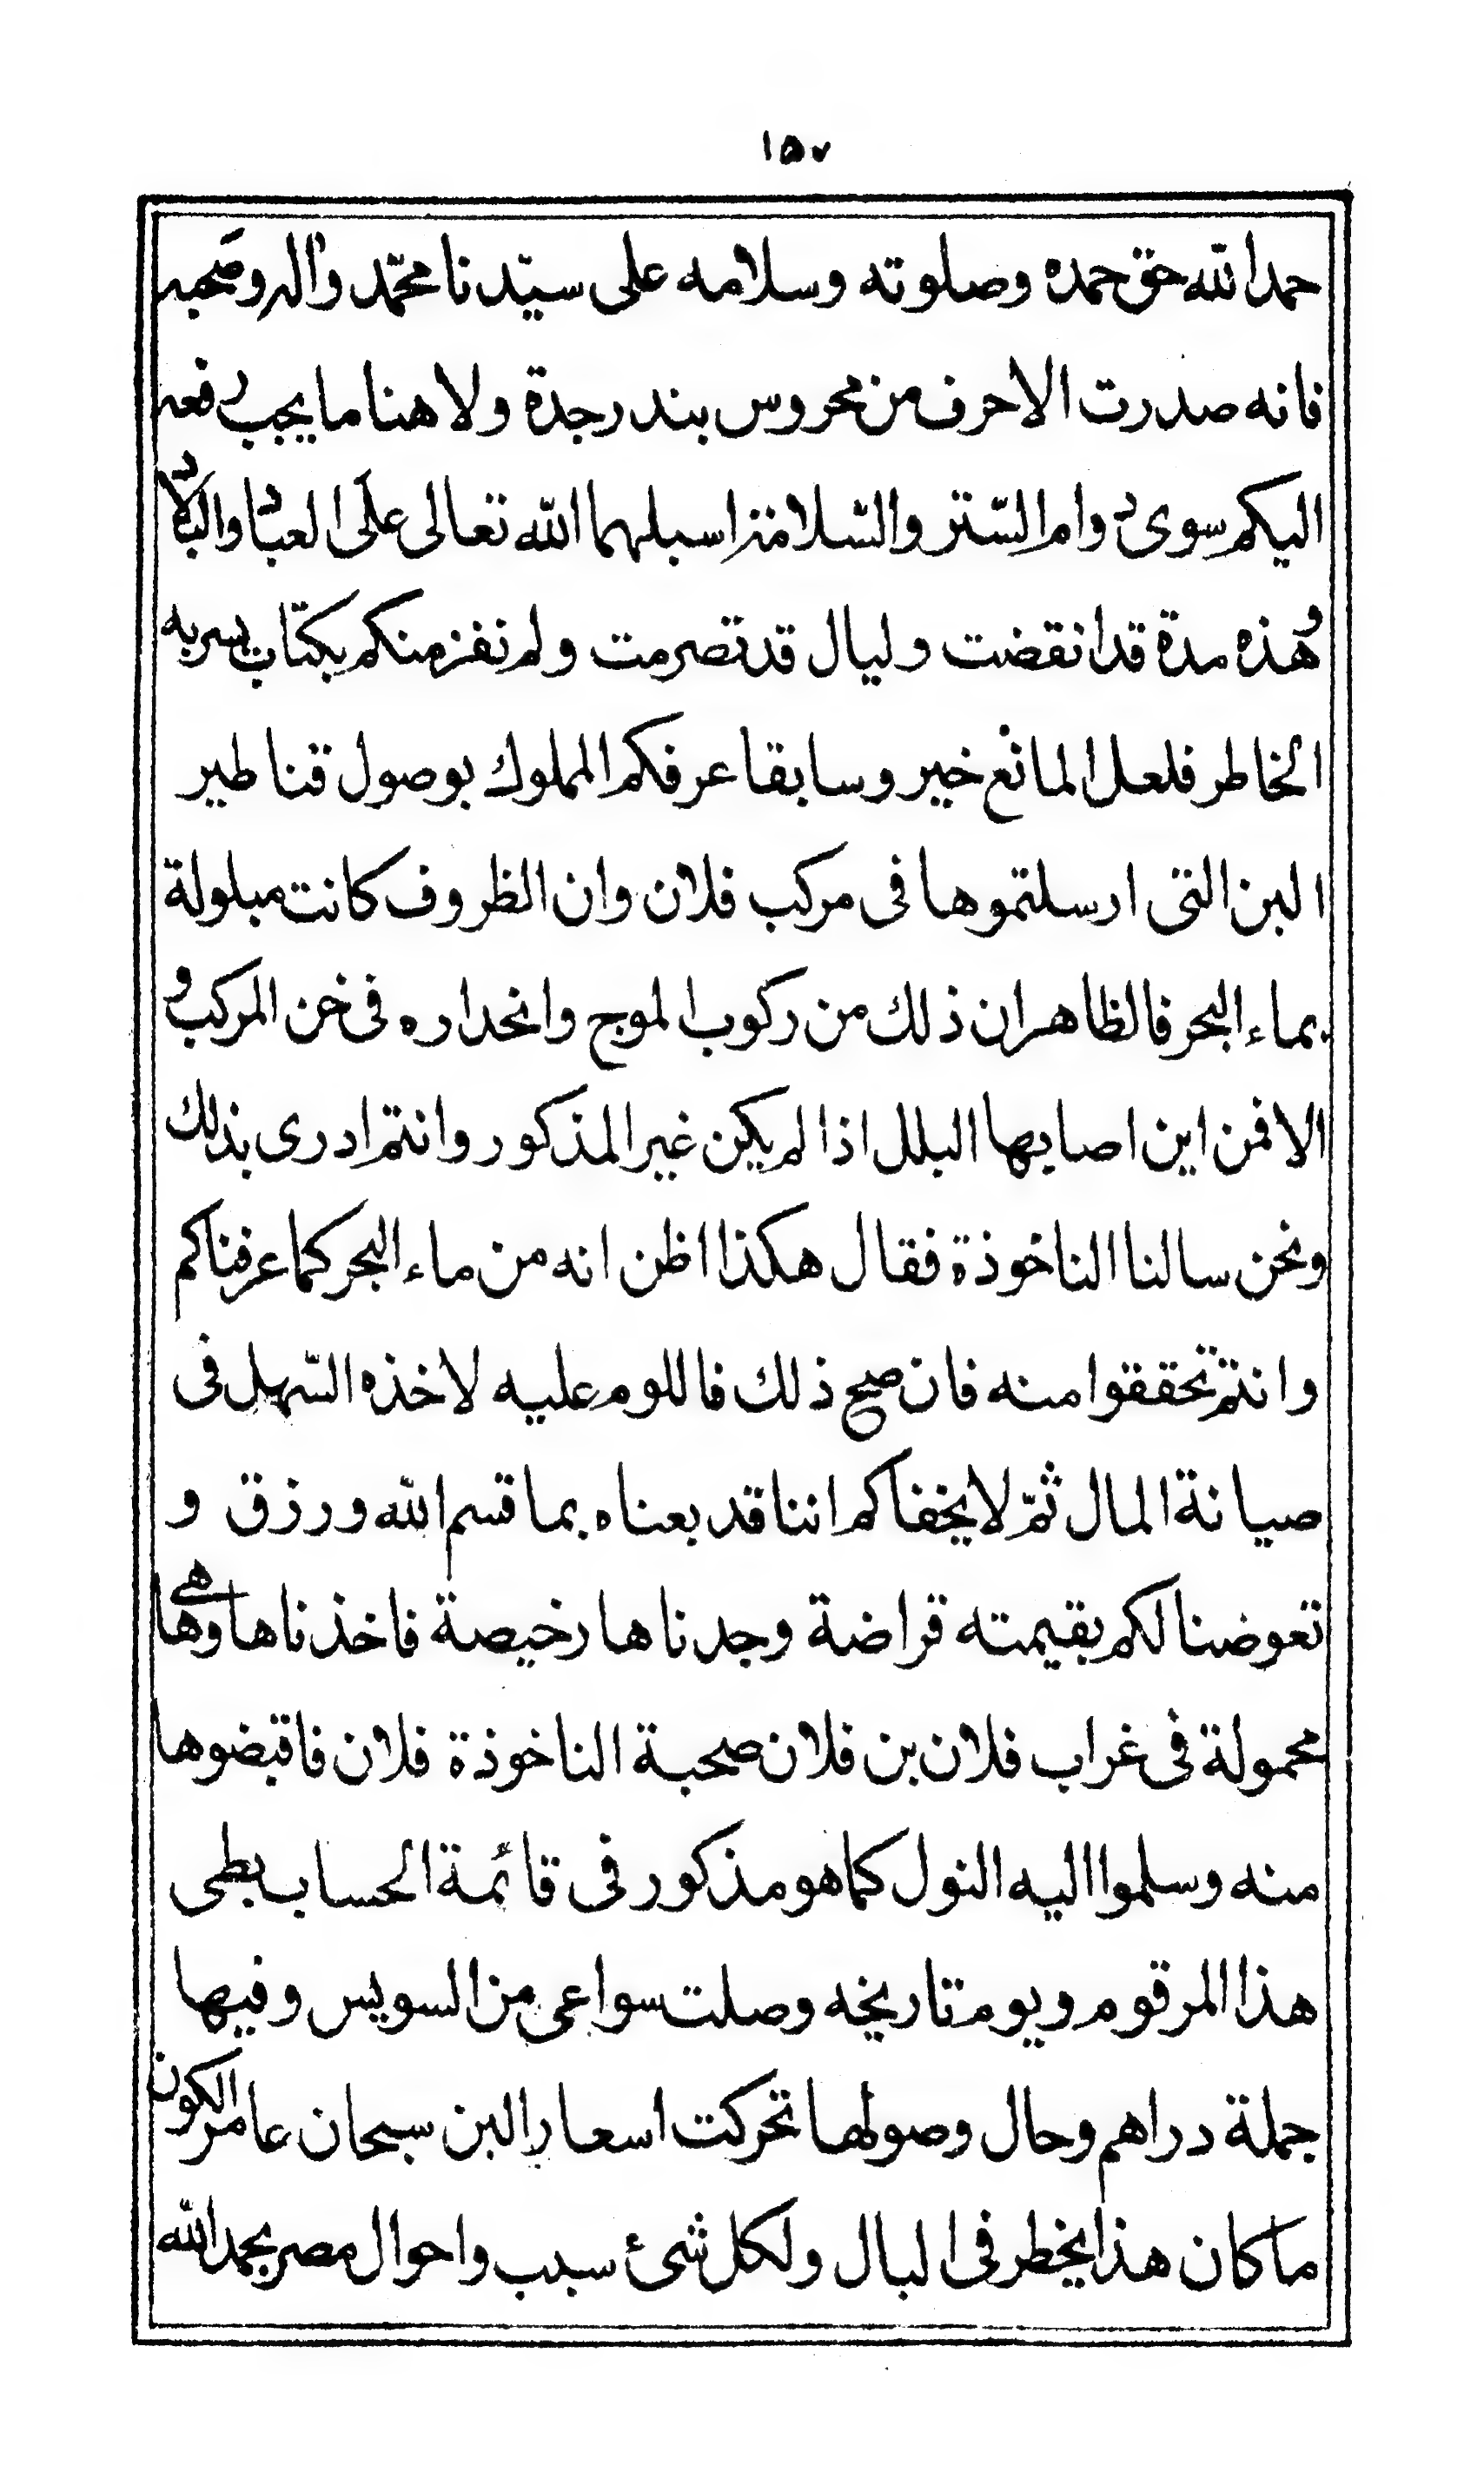 ١٥٧
حمدا لله حق حمده وصلوته وسلامه على سيّدنا محمّد واله وصحبه
فانه صدرت الاحرف من محروس بندر جدة ولا هنا ما يجب رفعه
اليكم سوى دوام السّتر والسّلامة اسبلهما الله تعالى على العباد والبلاد
وهذه مدة قد انقضت وليال قد تصرمت ولم نفز منكم بكتاب يسر به
الخاطر فلعل المانع خير وسابقا عرفكم المملوك بوصول قناطير
البن التى ارسلتموها فى مركب فلان وان الظروف كانت مبلولة
بماء البحر فالظاهر ان ذلك من ركوب الموج وانحداره فى خن المركب و
الا فمن اين اصابها البلل اذا لم يكن غير المذكور وانتم ادرى بذلك
ونحن سالنا الناخوذة فقال هكذا اظن انه من ماء البحر كما عرفناكم
وانتم تحققوا منه فان صح ذلك فاللوم عليه لاخذه السّهل فى
صيانة المال ثمّ لا يخفاكم اننا قد بعناه بما قسم الله ورزق و
تعوضنا لكم بقيمته قراضة وجدناها رخيصة فاخذناها وها هى
محمولة فى غراب فلان بن فلان صحبة الناخوذة فلان فاقبضوها
منه وسلموا اليه النول كما هو مذكور فى قائمة الحساب بطى
هذا المرقوم ويوم تاريخه وصلت سواعى من السويس وفيها
جملة دراهم وحال وصولها تحركت اسعار البن سبحان عامر الكون
ما كان هذا يخطر فى البال ولكل شئ سبب واحوال مصر بحمد الله